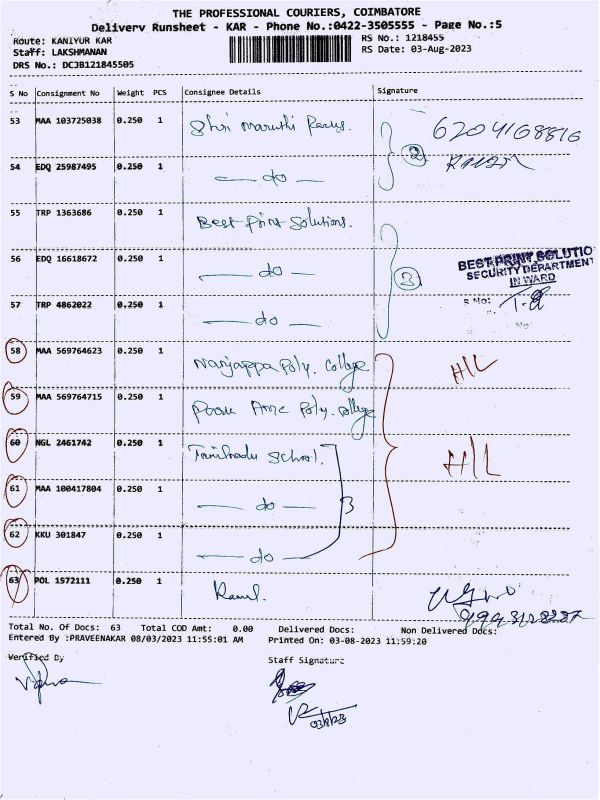 THE PROFESSIONAL COURIERS, COIMBATORE
Delivery Runsheet - KAR - Phone No.:0422-3505555 - Page No.:5
Route: KANIYUR KAR RS No.: 1218455
Staff: LAKSHMANAN RS Date: 03-Aug-2023
DRS No.: DCJB121845505
S No Consignment No Weight PCS Consignee Details Signature
53 MAA 103725038 0.250 1 Shri Maruthi 6204168816
54 EDQ 25987495 0.250 1 — do — 2
55 TRP 1363686 0.250 1 Best Print Solutions.
56 EDQ 16618672 0.250 1 — do — 3
BEST PRINT SOLUTIO
SECURITY DEPARTMENT
IN WARD
S No:
No:
57 TRP 4862022 0.250 1 — do —
58 MAA 569764623 0.250 1 Nanjappa Poly. College H/L
59 MAA 569764715 0.250 1 Poly. College
60 NGL 2461742 0.250 1 Tamilnadu School. H/L
61 MAA 100417804 0.250 1 — do — 3
62 KKU 301847 0.250 1 — do —
63 POL 1572111 0.250 1
Total No. Of Docs: 63 Total COD Amt: 0.00 Delivered Docs: Non Delivered Docs:
Entered By :PRAVEENAKAR 08/03/2023 11:55:01 AM Printed On: 03-08-2023 11:59:20
Verified By Staff Signature